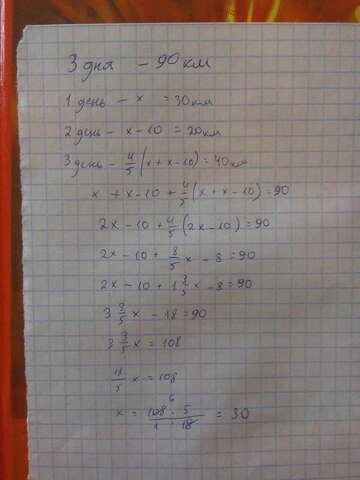 3 дня - 90 км
1 день - x = 30 км
2 день - x - 10 = 20 км
3 день - 4/5 (x + x - 10) = 40 км
x + x - 10 + 4/5 (x + x - 10) = 90
2x - 10 + 4/5 (2x - 10) = 90
2x - 10 + 8/5 x - 8 = 90
2x - 10 + 1 3/5 x - 8 = 90
3 3/5 x - 18 = 90
3 3/5 x = 108
18/5 x = 108
x = 108 · 5 / 1 · 18 = 30